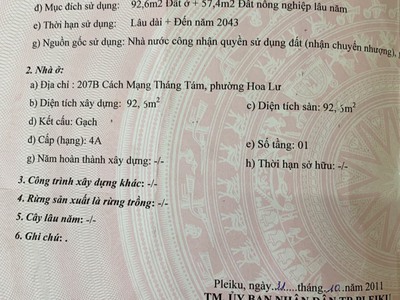 d) Mục đích sử dụng: 92,6m2 Đất ở + 57,4m2 Đất nông nghiệp lâu năm
e) Thời hạn sử dụng: Lâu dài + Đến năm 2043
g) Nguồn gốc sử dụng: Nhà nước công nhận quyền sử dụng đất (nhận chuyển nhượng),
2. Nhà ở:
a) Địa chỉ : 207B Cách Mạng Tháng Tám, phường Hoa Lư
b) Diện tích xây dựng: 92, 5m² c) Diện tích sàn: 92, 5m²
d) Kết cấu: Gạch
đ) Cấp (hạng): 4A e) Số tầng: 01
g) Năm hoàn thành xây dựng: -/- h) Thời hạn sở hữu: -/-
3. Công trình xây dựng khác: -/-
4. Rừng sản xuất là rừng trồng: -/-
5. Cây lâu năm: -/-
6. Ghi chú: .
Pleiku, ngày..21....tháng..10..năm 2011
TM. ỦY BAN NHÂN DÂN TP.PLEIKU